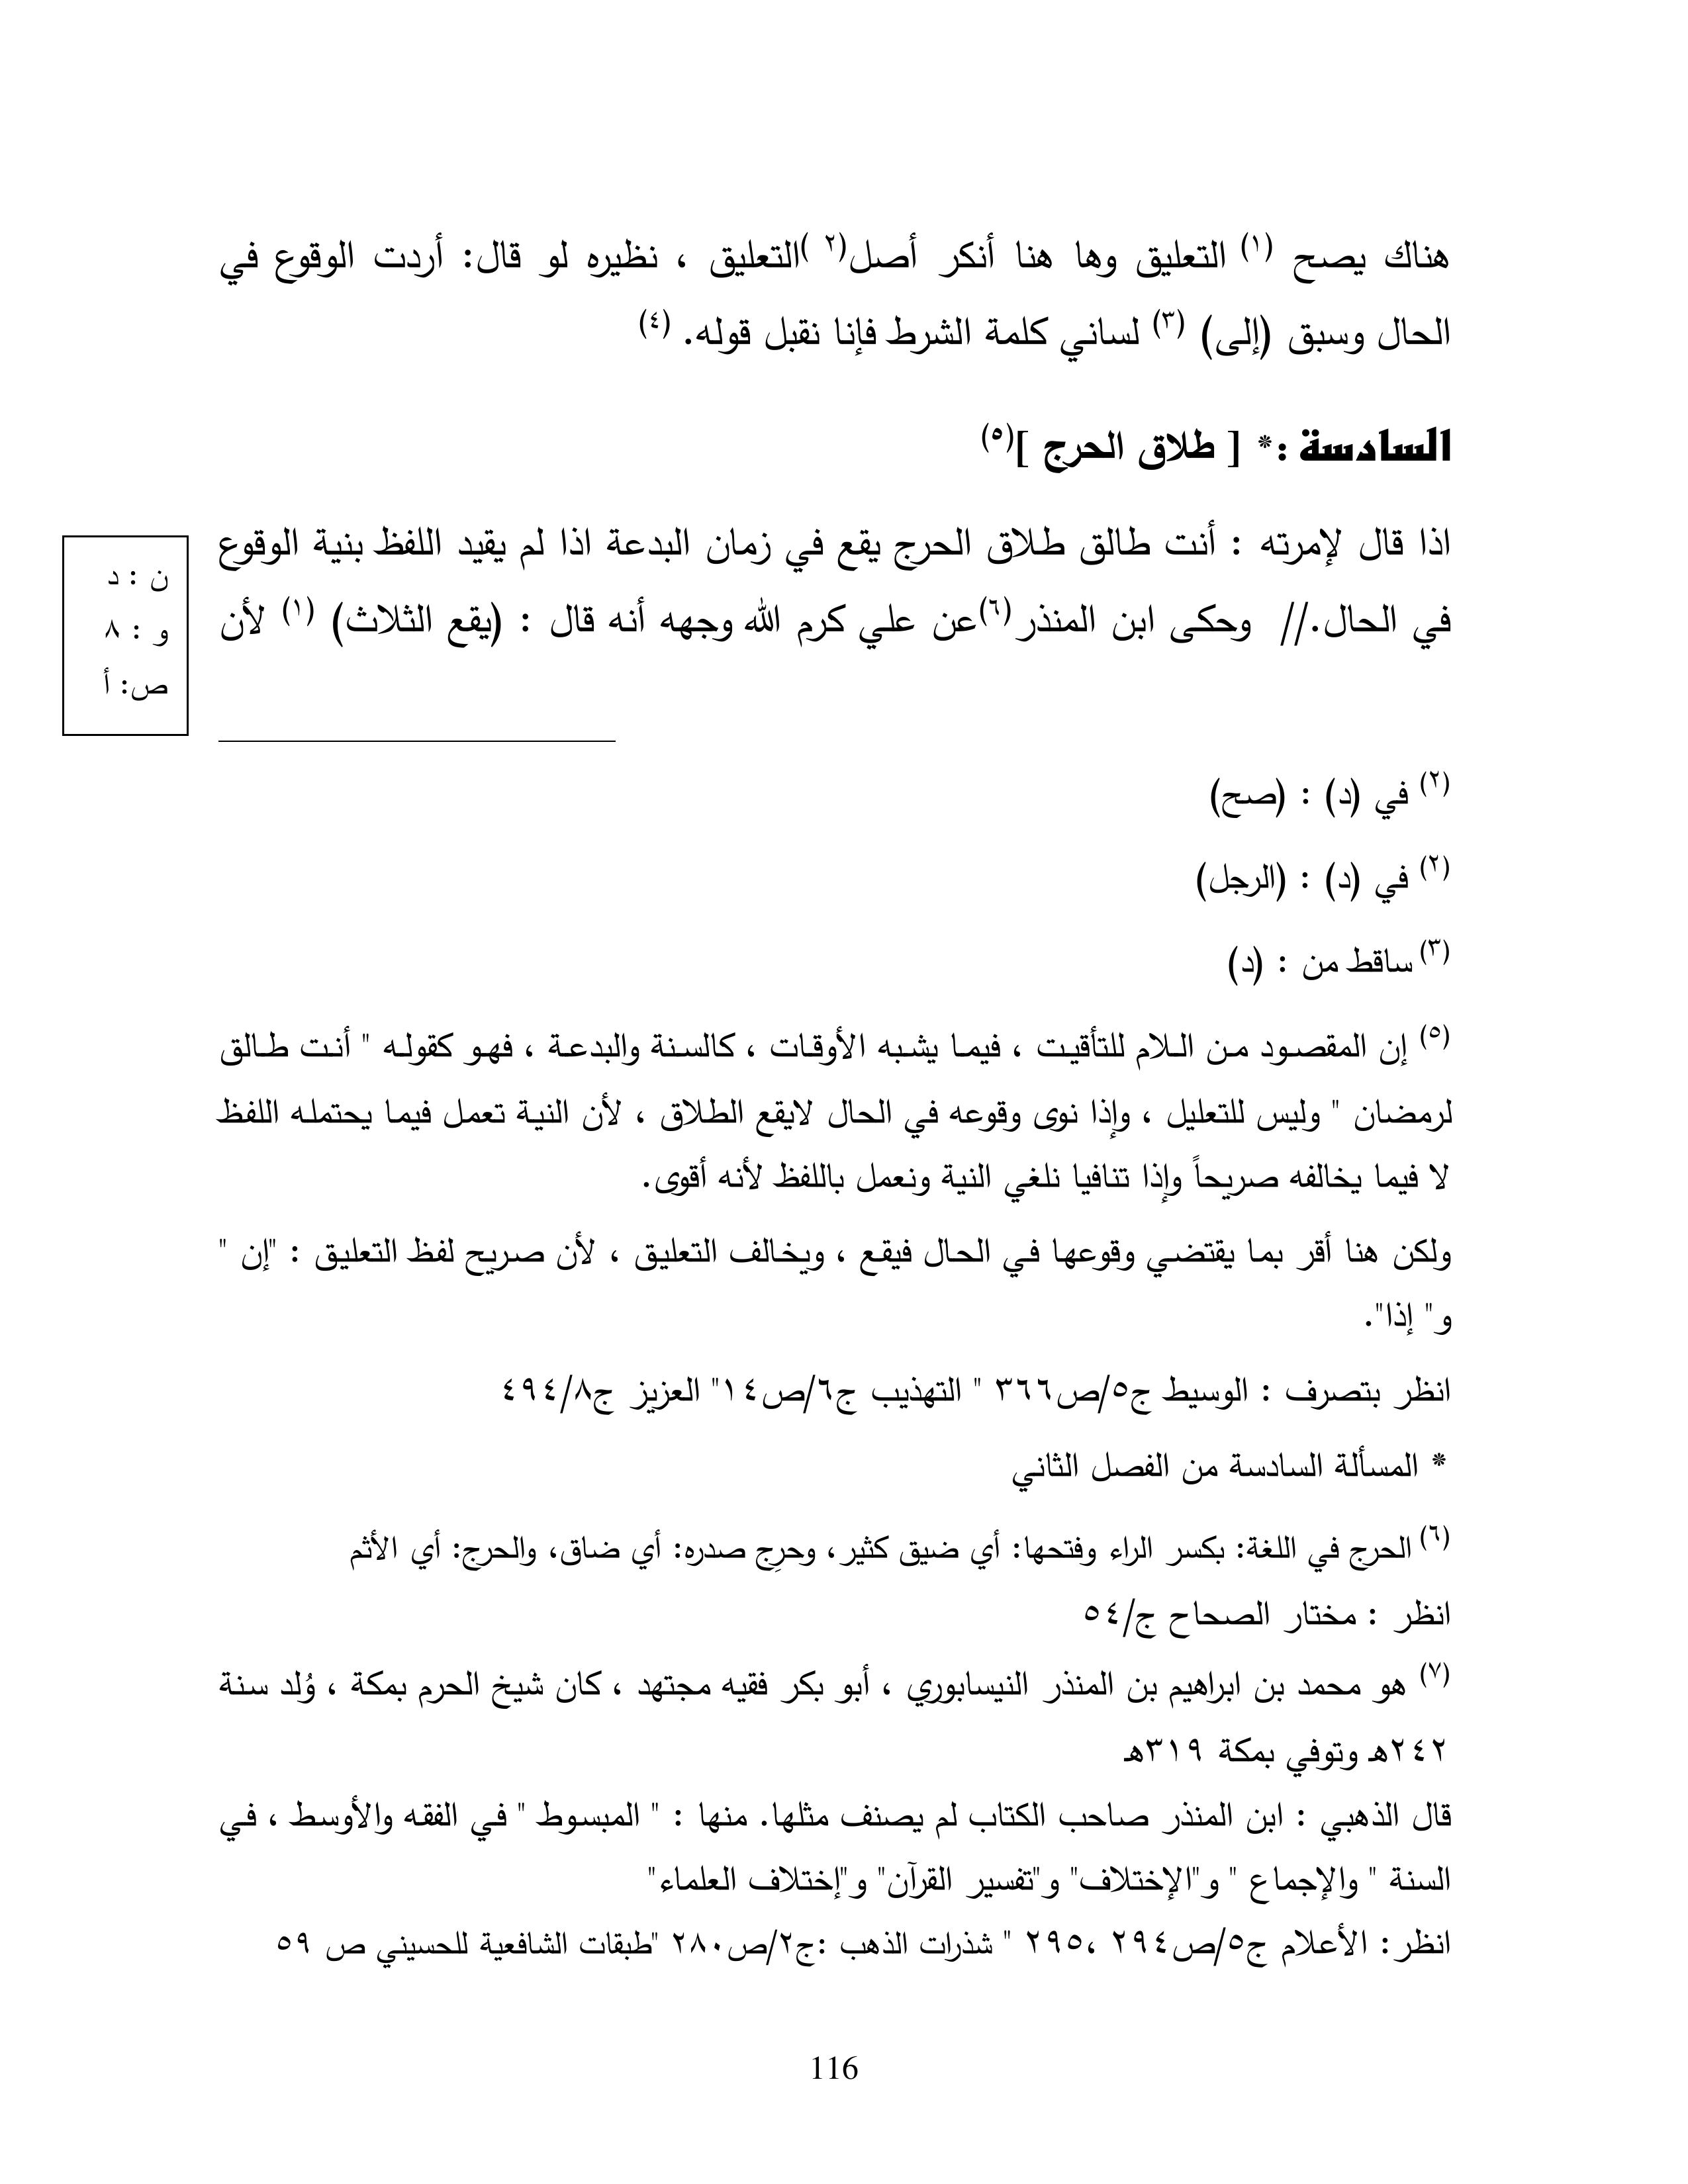 هناك يصح (١) التعليق وها هنا أنكر أصل(٢ )التعليق ، نظيره لو قال: أردت الوقوع في
الحال وسبق (إلى) (٣) لساني كلمة الشرط فإنا نقبل قوله. (٤)
السادسة :* [ طلاق الحرج ](٥)
اذا قال لإمرته : أنت طالق طلاق الحرج يقع في زمان البدعة اذا لم يقيد اللفظ بنية الوقوع
في الحال.// وحكى ابن المنذر(٦)عن علي كرم الله وجهه أنه قال : (يقع الثلاث) (١) لأن
ن : د
و : ٨
ص: أ
(٢) في (د) : (صح)
(٢) في (د) : (الرجل)
(٣) ساقط من : (د)
(٥) إن المقصود من اللام للتأقيت ، فيما يشبه الأوقات ، كالسنة والبدعة ، فهو كقوله " أنت طالق
لرمضان " وليس للتعليل ، وإذا نوى وقوعه في الحال لايقع الطلاق ، لأن النية تعمل فيما يحتمله اللفظ
لا فيما يخالفه صريحاً وإذا تنافيا نلغي النية ونعمل باللفظ لأنه أقوى.
ولكن هنا أقر بما يقتضي وقوعها في الحال فيقع ، ويخالف التعليق ، لأن صريح لفظ التعليق : "إن "
و" إذا".
انظر بتصرف : الوسيط ج٥/ص٣٦٦ " التهذيب ج٦/ص١٤" العزيز ج٤٩٤/٨
* المسألة السادسة من الفصل الثاني
(٦) الحرج في اللغة: بكسر الراء وفتحها: أي ضيق كثير، وحرِج صدره: أي ضاق، والحرج: أي الأثم
انظر : مختار الصحاح ج/٥٤
(٧) هو محمد بن ابراهيم بن المنذر النيسابوري ، أبو بكر فقيه مجتهد ، كان شيخ الحرم بمكة ، وُلد سنة
٢٤٢هـ وتوفي بمكة ٣١٩هـ
قال الذهبي : ابن المنذر صاحب الكتاب لم يصنف مثلها. منها : " المبسوط " في الفقه والأوسط ، في
السنة " والإجماع " و"الإختلاف" و"تفسير القرآن" و"إختلاف العلماء"
انظر: الأعلام ج٥/ص٢٩٤ ،٢٩٥ " شذرات الذهب :ج٢/ص٢٨٠ "طبقات الشافعية للحسيني ص ٥٩
116